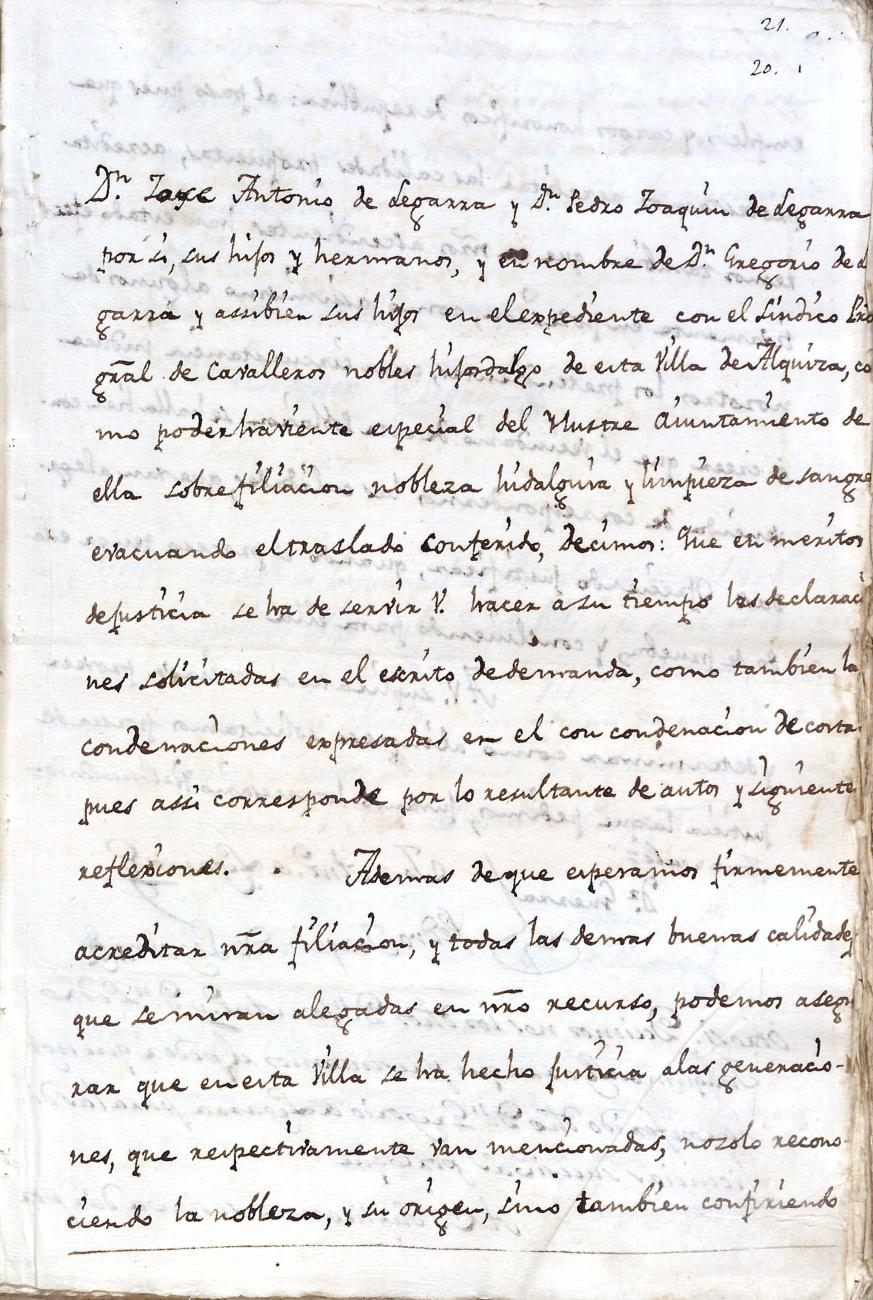 21.
20.
Dn. Joxe Antonio de Legarra y Dn. Pedro Joaquin de Legarra
por si, sus hijos y hermanos, y en nombre de Dn. Gregorio de
garra y assibien sus hijos en el expediente con el sindico Pro
gral de Cavalleros nobles hijosdalgo de esta Villa de Alquiza, co
mo poderhaviente especial del Yllustre Aiuntamiento de
ella sobre filiacion nobleza hidalguia y limpieza de sangre
evacuando el traslado conferido, decimos: Que en meritos
de justicia se ha de servir V. hacer a su tiempo las declaraci
nes solicitadas en el escrito de demanda, como tambien la
condenaciones expresadas en el con condenacion de costa
pues assi corresponde por lo resultante de autos y siguiente
reflexiones. Ademas de que esperamos firmemente
acreditar nra filiacion, y todas las demas buenas calidades
que se miran alegadas en nro recurso, podemos asegu
rar que en esta Villa se ha hecho justicia a las generacio-
nes, que respectivamente van mencionadas, nosolo recono-
ciendo la nobleza, y su origen, sino tambien confiriendo